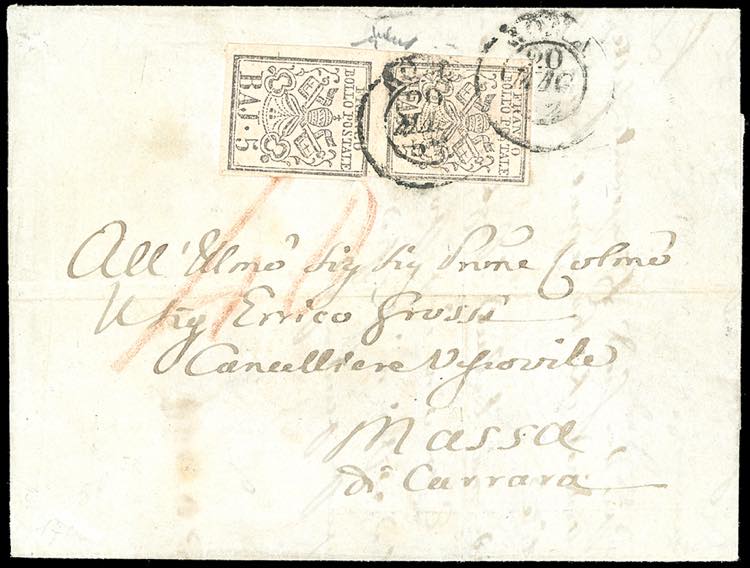 BOLLO POSTALE
BAJ. 5
BOLLO POSTALE
ROMA
20
10
All' Illmo Sig Sig Prone Colmo
Il Sig Errico Grossi
Cancelliere Vescovile
Massa
di Carrara